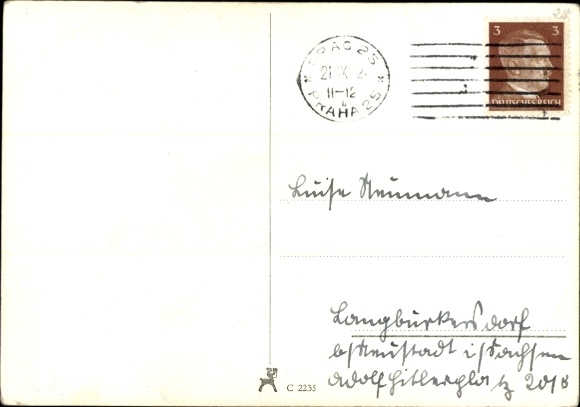 25
3 3
PRAG 25
21. IX. 42
11-12
PRAHA 25
DEUTSCHES REICH
Luise Neumann
Langburkersdorf
b/Neustadt i/Sachsen
Adolf Hitlerplatz 201 B
C 2235